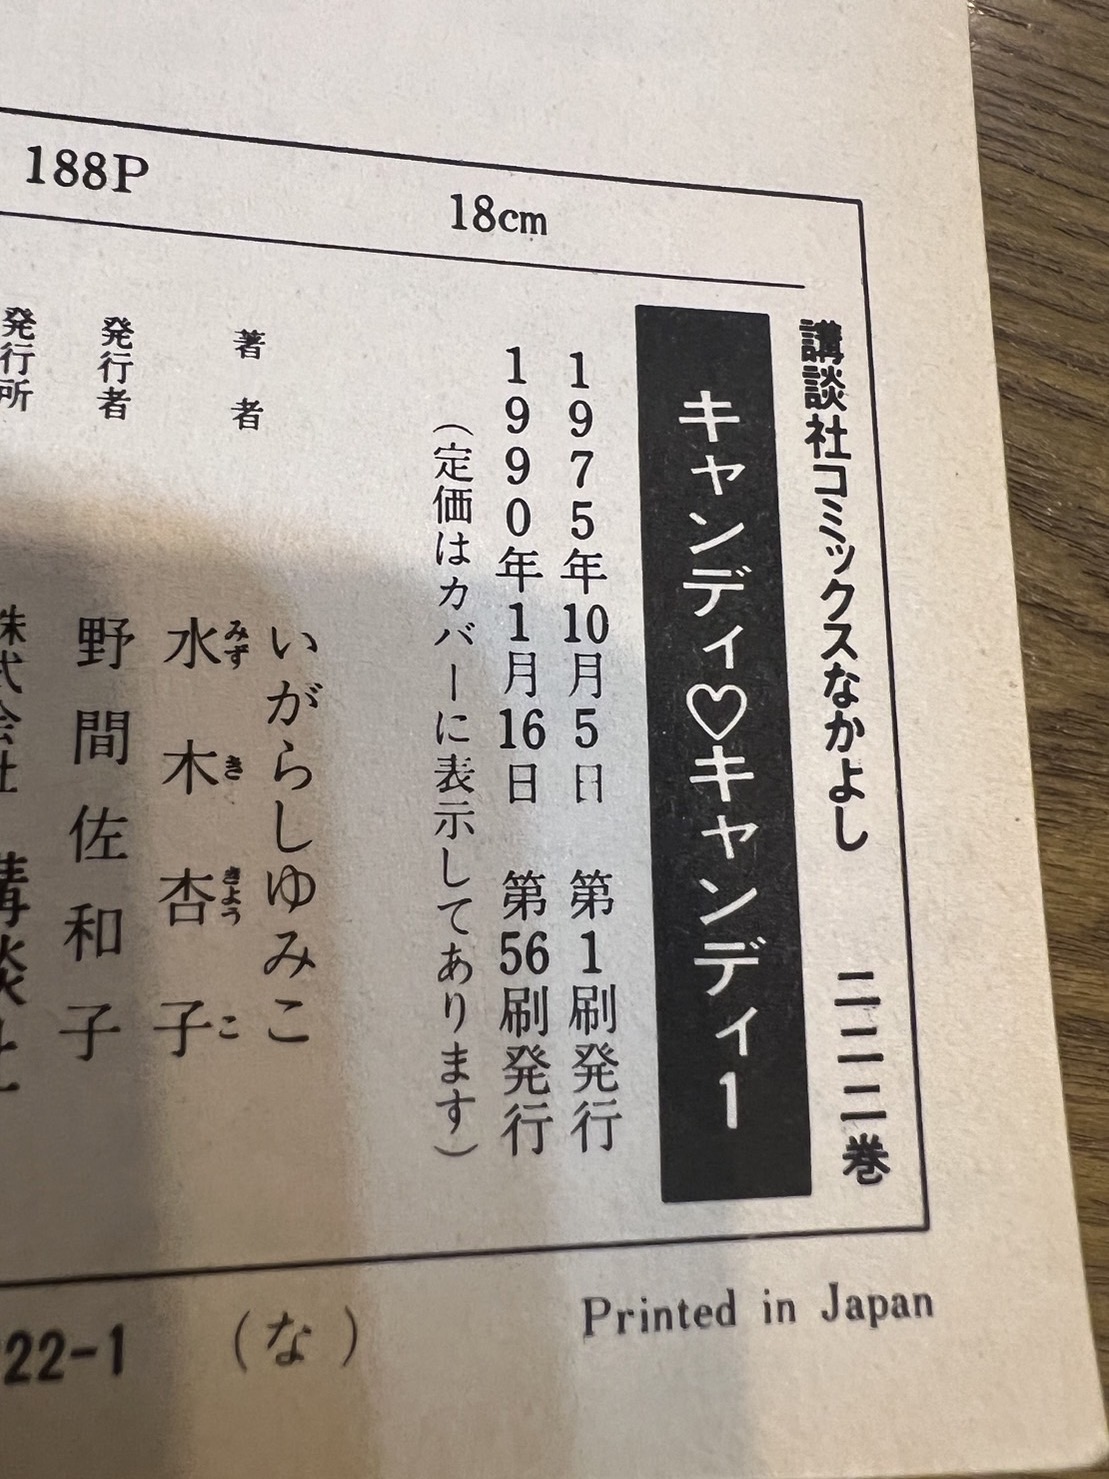 188P 18cm
講談社コミックスなかよし 二二二巻
キャンディ♡キャンディ1
1975年10月5日 第1刷発行
1990年1月16日 第56刷発行
(定価はカバーに表示してあります)
著者 いがらしゆみこ
水木杏子
みずききょうこ
発行者 野間佐和子
発行所 株式会社 講談社
22-1 (な)
Printed in Japan